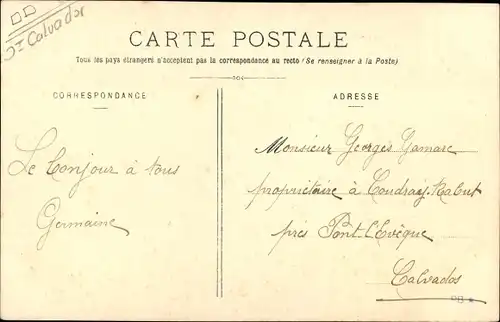 St Calvador
CARTE POSTALE
Tous les pays étrangers n'acceptent pas la correspondance au recto (Se renseigner à la Poste)
CORRESPONDANCE
ADRESSE
Le bonjour à tous
Germaine
Monsieur Georges Gamare
propriétaire à Coudray-Rabut
près Pont-l'Evêque
Calvados